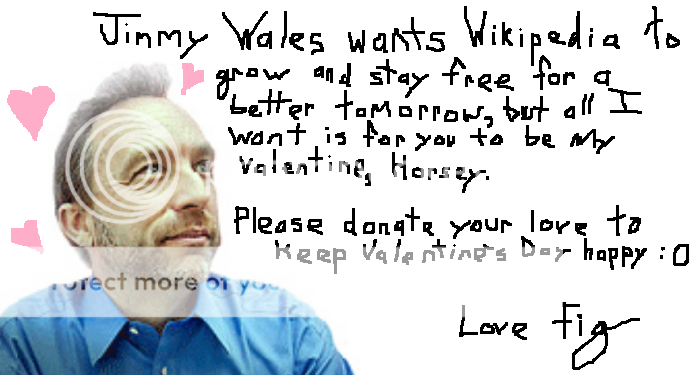 Jimmy Wales wants Wikipedia to
grow and stay free for a
better tomorrow, but all I
want is for you to be my
Valentine, Horsey.
Please donate your love to
keep Valentine's Day happy :O
Love Fig
rect more of you